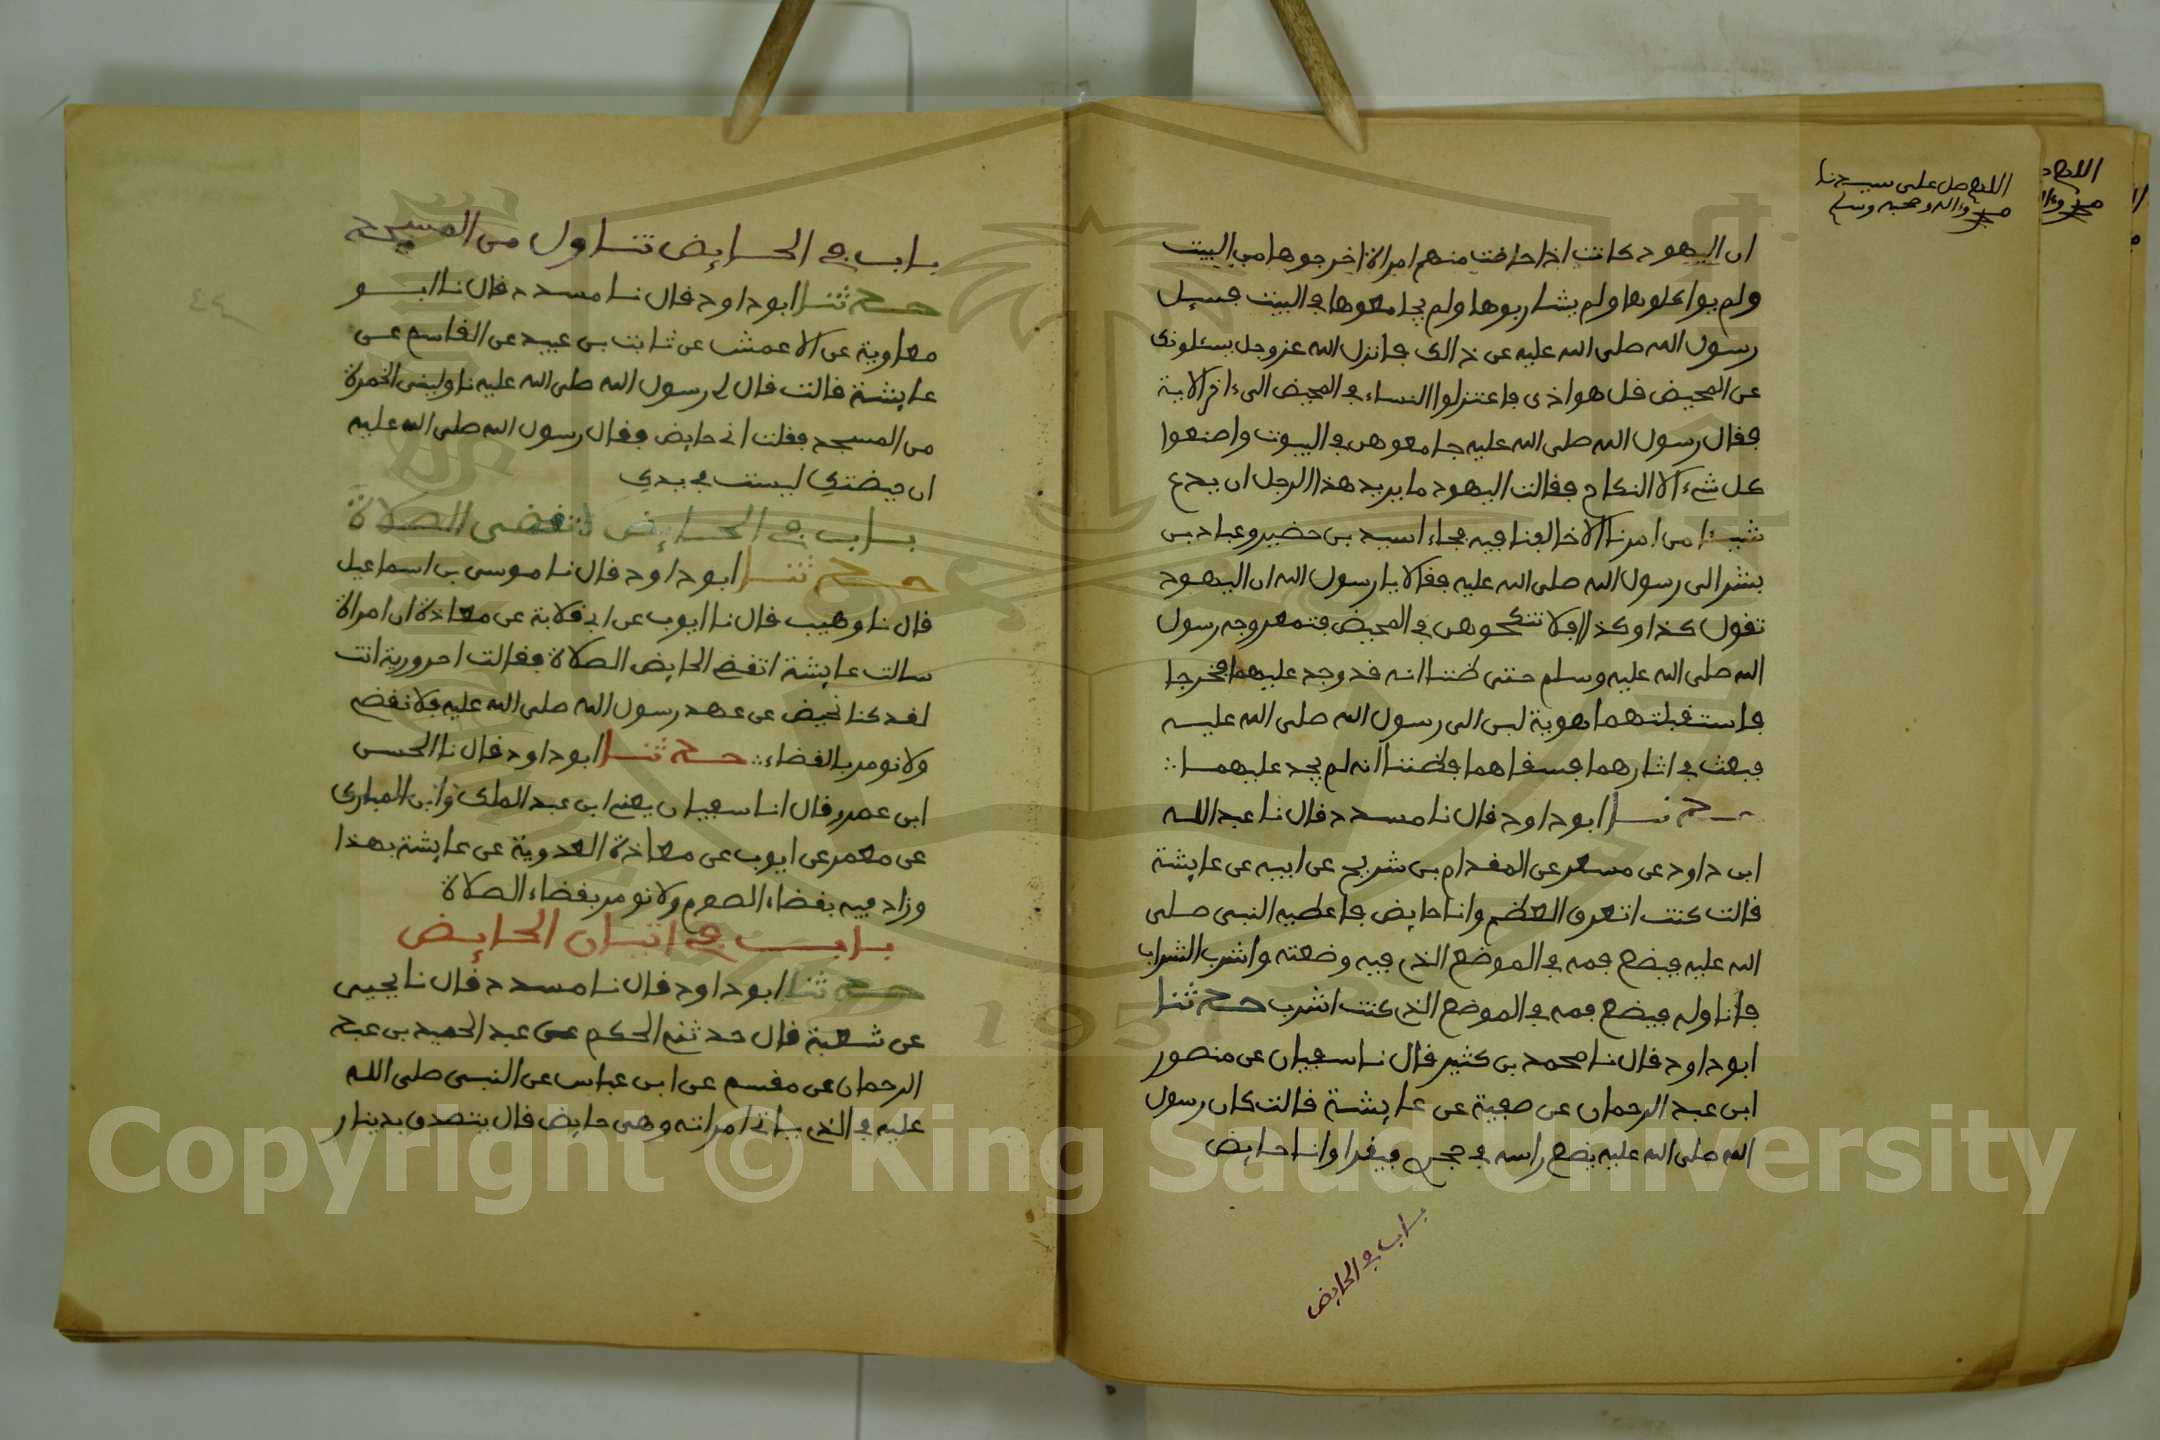 اللهم صل على سيدنا
محمد وءاله وصحبه وسلم
ان اليهود كانت اذا حاضت منهم امراة اخرجوها من البيت
ولم يواكلوها ولم يشاربوها ولم يجامعوها في البيت فسيل
رسول الله صلى الله عليه عن ذالك فانزل الله عز وجل يسئلونك
عن المحيض قل هو اذى فاعتزلوا النساء في المحيض الى ءاخر الاية
فقال رسول الله صلى الله عليه جامعوهن في البيوت واصنعوا
كل شيء الا النكاح فقالت اليهود ما يريد هذا الرجل ان يدع
شيئا من امرنا الا خالفنا فيه فجاء اسيد بن حضير وعباد بن
بشر الى رسول الله صلى الله عليه فقالا يا رسول الله ان اليهود
تقول كذا وكذا افلا ننكحوهن في المحيض فتمعر وجه رسول
الله صلى الله عليه وسلم حتى ظننا انه قد وجد عليهما فخرجا
فاستقبلتهما هدية لبن الى رسول الله صلى الله عليه
فبعث في اثارهما فسقاهما فظننا انه لم يجد عليهما
حدثنا ابو داود قال نا مسدد قال نا عبد الله
ابن داود عن مسعر عن المقدام بن شريح عن ابيه عن عايشة
قالت كنت اتعرق العظم وانا حايض فاعطيه النبي صلى
الله عليه فيضع فمه في الموضع الذي فيه وضعته واشرب الشراب
فاناوله فيضع فمه في الموضع الذي كنت اشرب حدثنا
ابو داود قال نا محمد بن كثير قال نا سفيان عن منصور
ابن عبد الرحمان عن صفية عن عايشة قالت كان رسول
الله صلى الله عليه يضع راسه في حجري فيقرا وانا حايض
باب في الحايض
باب في الحايض تناول من المسجد
حدثنا ابو داود قال نا مسدد قال نا ابو
معاوية عن الاعمش عن ثابت بن عبيد عن القاسم عن
عايشة قالت قال لي رسول الله صلى الله عليه ناوليني الخمرة
من المسجد فقلت اني حايض فقال رسول الله صلى الله عليه
ان حيضتك ليست في يدك
باب في الحايض لا تقضي الصلاة
حدثنا ابو داود قال نا موسى بن اسماعيل
قال نا وهيب قال نا ايوب عن ابي قلابة عن معاذة ان امراة
سالت عايشة اتقضي الحايض الصلاة فقالت احرورية انت
لقد كنا نحيض عن عهد رسول الله صلى الله عليه فلا نقضي
ولا نومر بالقضاء حدثنا ابو داود قال نا الحسن
ابن عمرو قال انا سفيان يعني ابن عبد الملك وابن المبارك
عن معمر عن ايوب عن معاذة العدوية عن عايشة بهذا
وزاد فيه بقضاء الصوم ولا نومر بقضاء الصلاة
باب في اتيان الحايض
حدثنا ابو داود قال نا مسدد قال نا يحيى
عن شعبة قال حدثني الحكم عن عبد الحميد بن عبد
الرحمان عن مقسم عن ابن عباس عن النبي صلى الله
عليه في الذي ياتي امراته وهي حايض قال يتصدق بدينار
٤٤
1957
Copyright © King Saud University